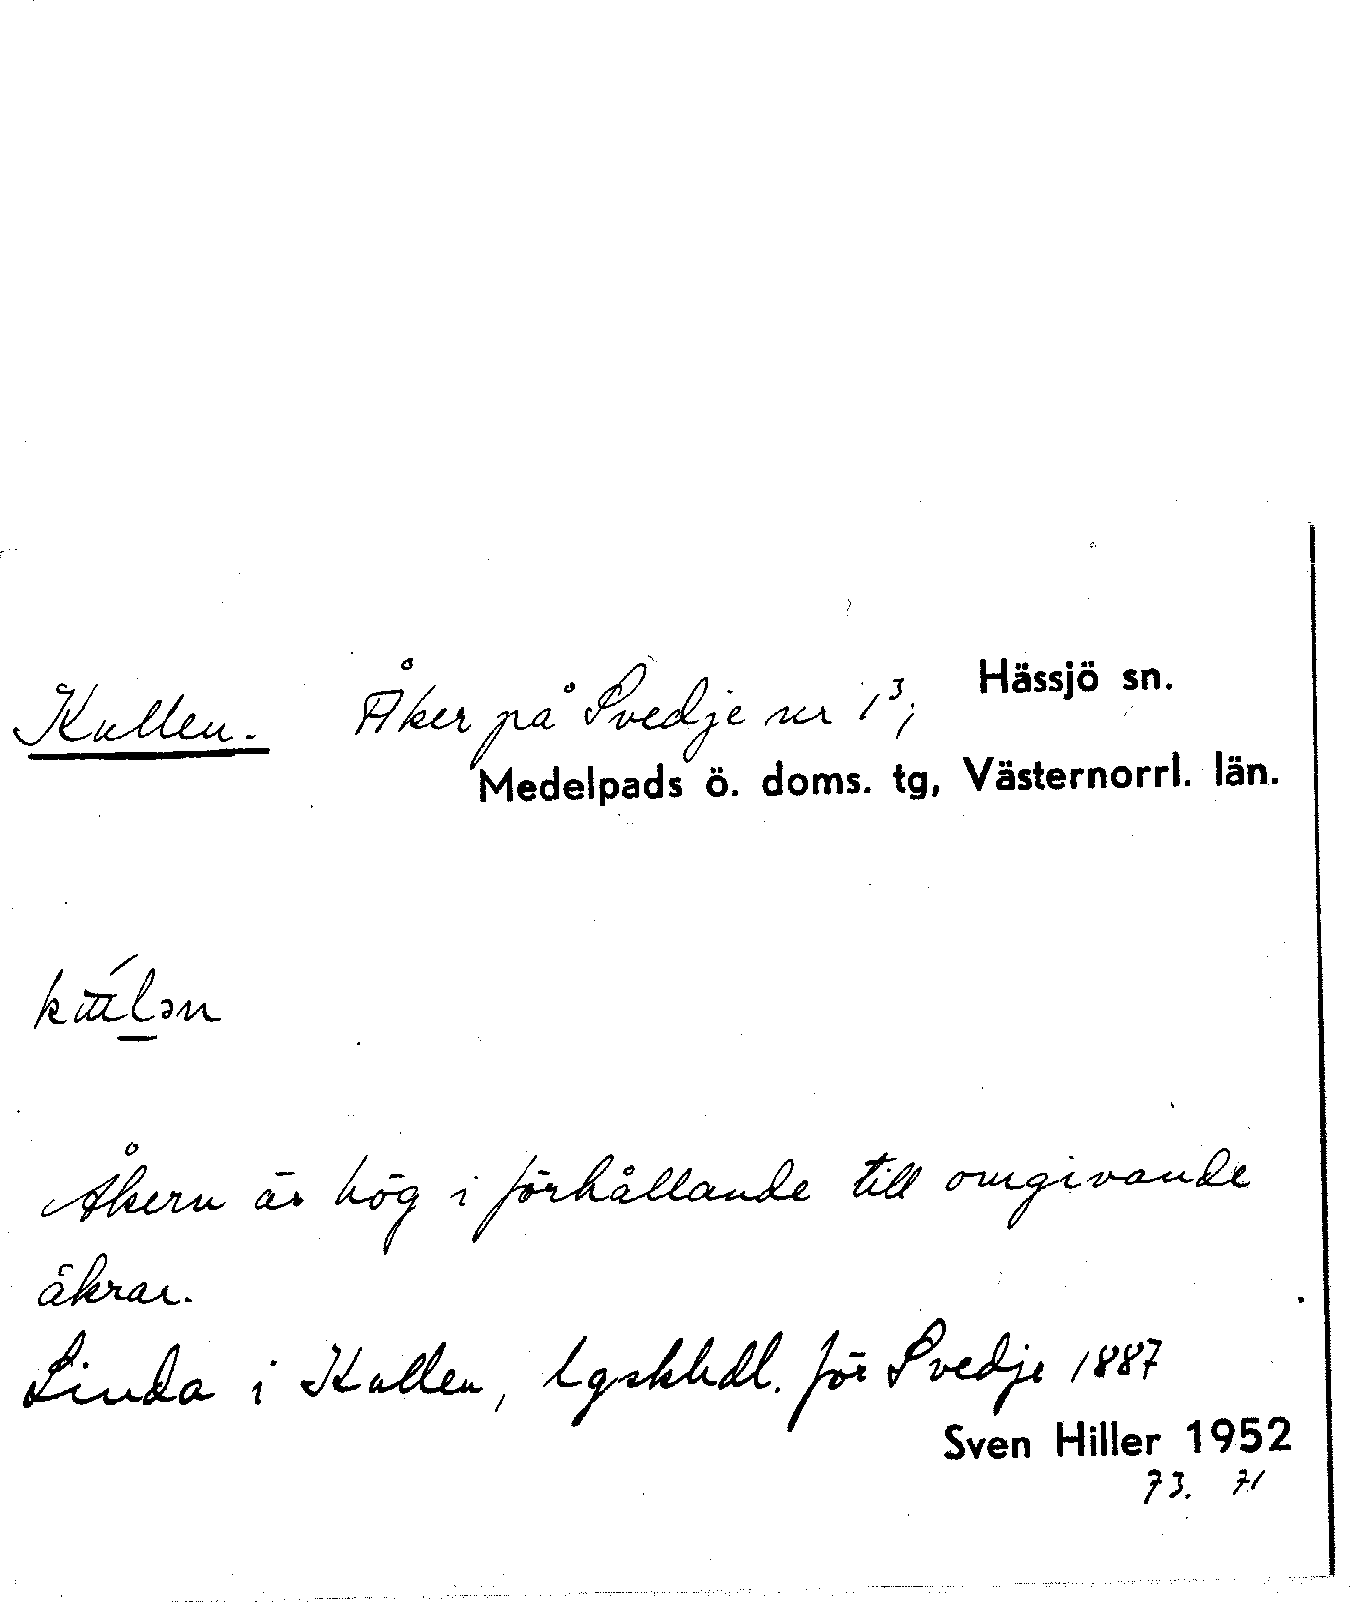 Kullen. Åker på Svedje nr 1³; Hässjö sn.
Medelpads ö. doms. tg, Västernorrl. län.
Åkern är hög i förhållande till omgivande
åkrar.
Linda i Kullen, Lgskhdl. för Svedje 1887
Sven Hiller 1952
73. 71